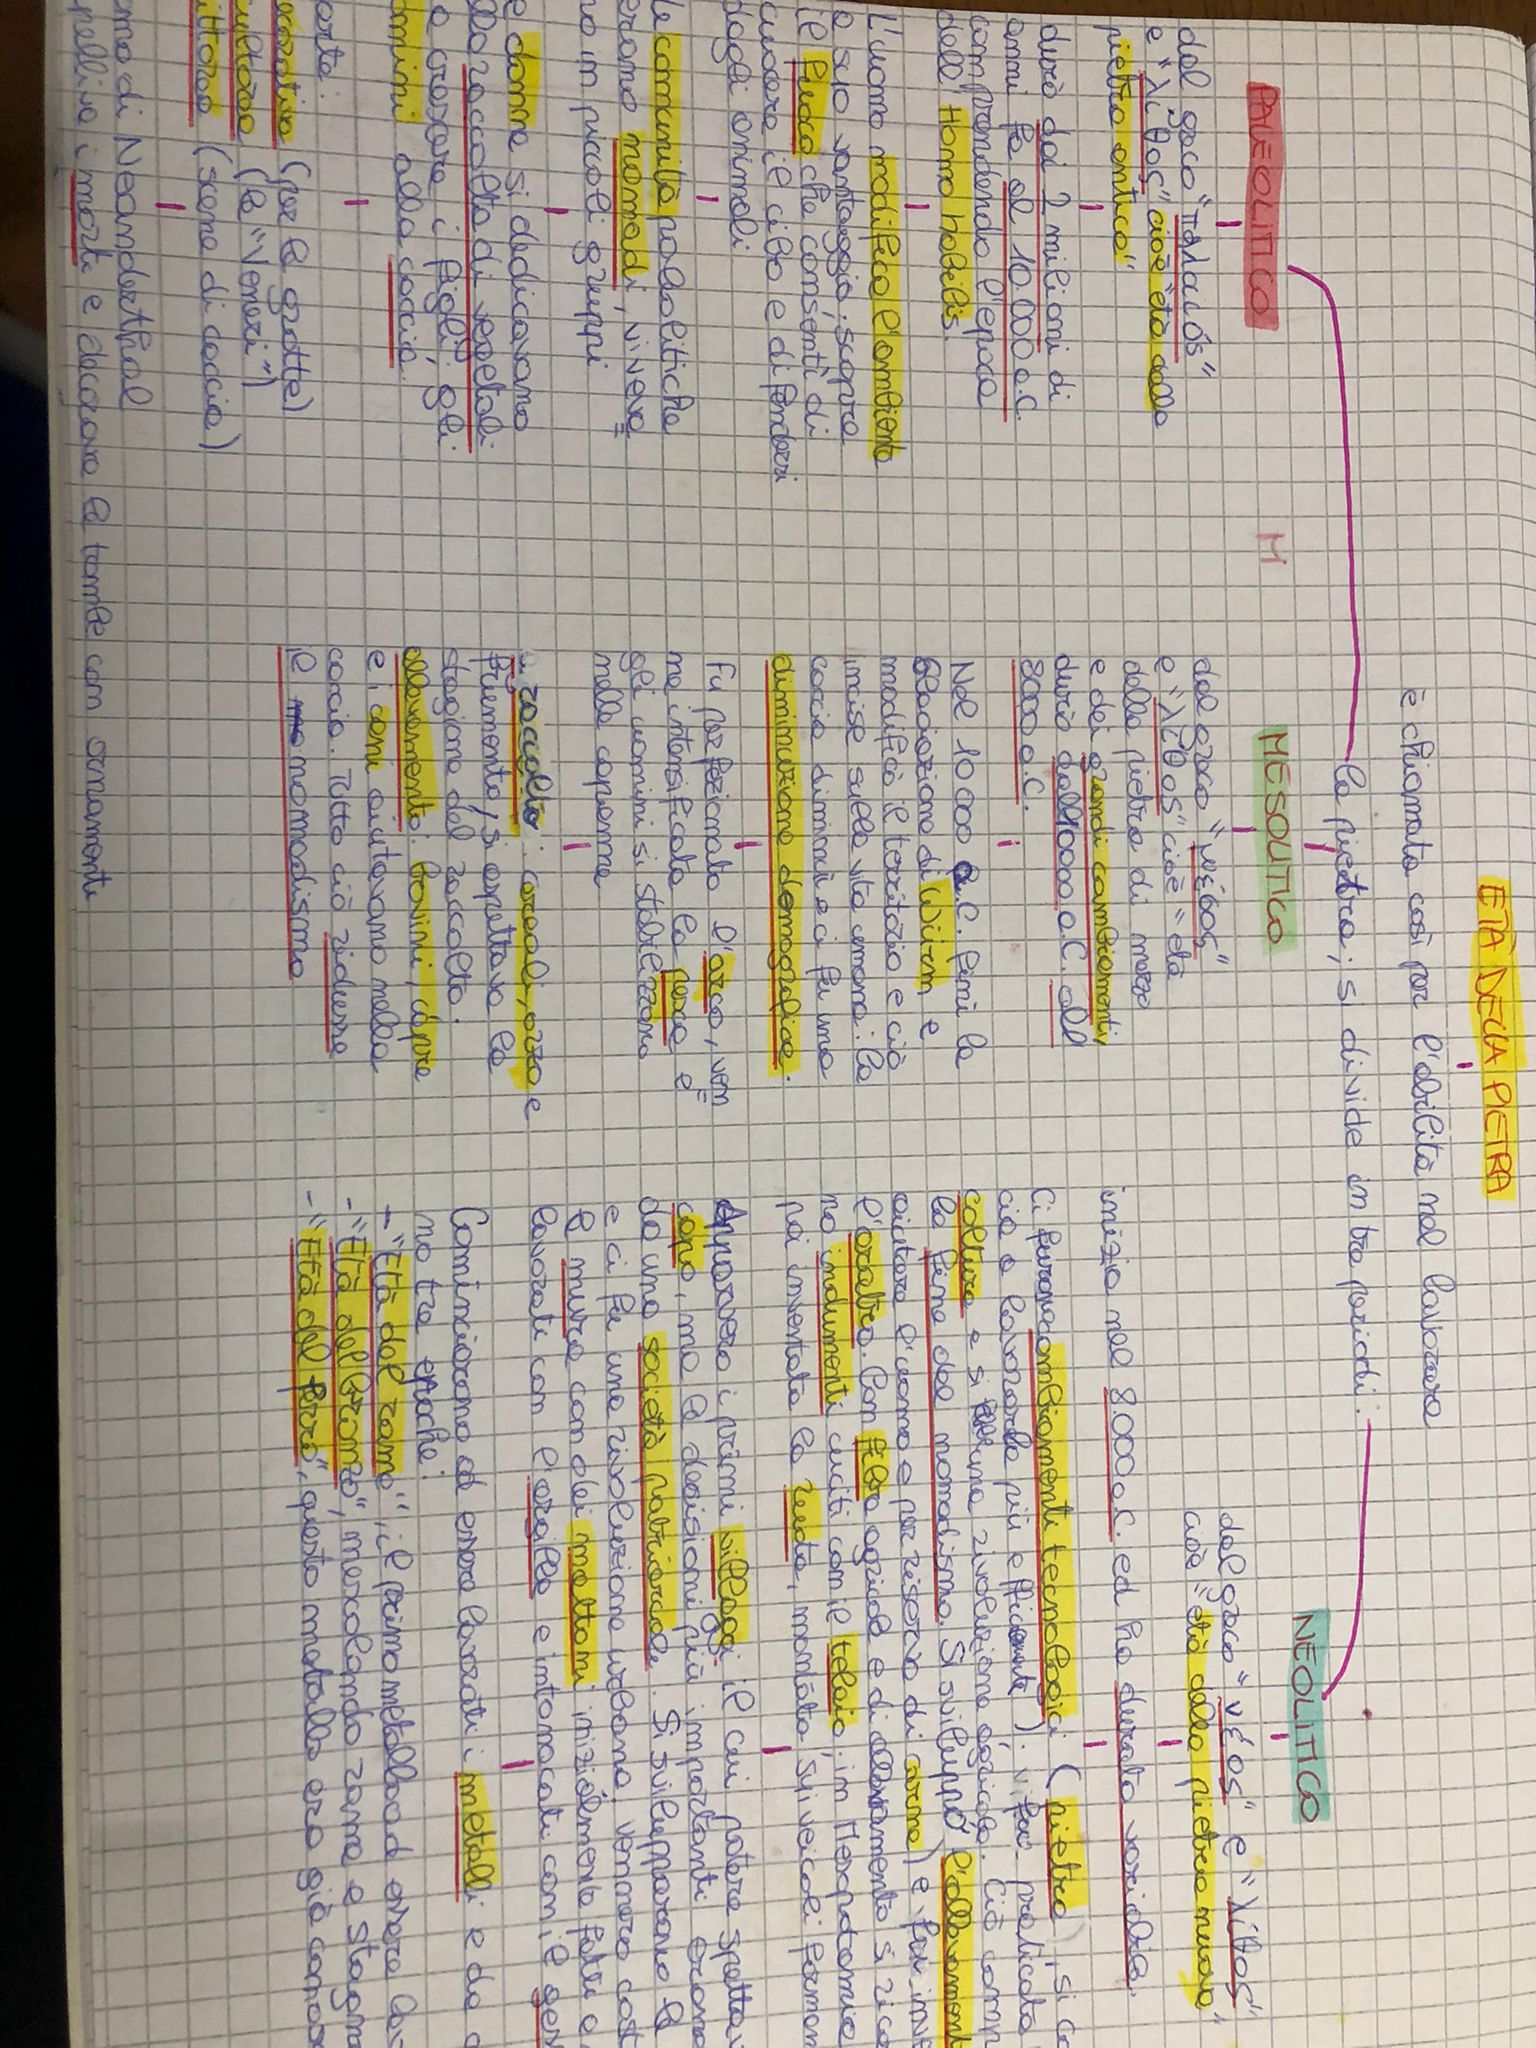 ETÀ DELLA PIETRA
è chiamata così per l'abilità nel lavorare
la pietra; si divide in tre periodi:
PALEOLITICO
dal greco "παλαιός"
e "λίθος" cioè "età della
pietra antica"
durò dai 2 milioni di
anni fa al 10000 a.C.
comprendendo l'epoca
dell'Homo habilis.
L'uomo modificò l'ambiente
a suo vantaggio; scoprì
il fuoco che consentì di
cuocere il cibo e difendersi
dagli animali
Le comunità paleolitiche
erano nomadi, viveva=
no in piccoli gruppi
le donne si dedicavano
alla raccolta di vegetali
e crescere i figli, gli
uomini alla caccia.
(per le grotte)
(le "Veneri")
(scene di caccia)
di Neanderthal
i morti e decorava le tombe con ornamenti
M
MESOLITICO
dal greco "μέσος"
e "λίθος" cioè "età
della pietra di mezzo
e dei grandi cambiamenti,
durò dall'10000 a.C. all'
8000 a.C.
Nel 10 000 a.C. finì la
glaciazione di Würm e
modificò il territorio e ciò
incise sulla vita umana: la
caccia diminuì e ci fu una
diminuzione demografica.
Fu perfezionato l'arco, ven=
ne intensificata la pesca e
gli uomini si stabilizzano
nelle capanne
raccolta: cereali, orzo e
frumento, si aspettava la
stagione del raccolto.
allevamento: bovini, capre
e i cani aiutavano nella
caccia. Tutto ciò ridusse
il nomadismo
NEOLITICO
dal greco "νέος" e "λίθος"
cioè "età della pietra nuova"
inizia nel 8000 a.C. ed ha durata variabile.
Ci furono cambiamenti tecnologici (pietra, si
ciò a lavorarla più efficiente). Vi fu praticata
coltura e si ebbe una rivoluzione agricola. Ciò
la fine del nomadismo. Si sviluppò l'allevamento
aiutare l'uomo e per riserva di carne) e fu
l'aratro. Con fibre agricole e di allevamento si
no indumenti cuciti con il telaio; in Mesopotamia
poi inventata la ruota, montata su veicoli
Apparvero i primi villaggi il cui potere
capo, ma le decisioni più importanti erano
da una società patriarcale. Si svilupparono le
e ci fu una rivoluzione urbana, vennero
le mura con dei mattoni inizialmente fatti e
lavorati con l'argilla e intonacati con il
Cominciarono ad essere lavorati i metalli e da
no tre epoche:
- "Età del rame", il primo metallo ad essere
- "Età del bronzo", mescolando rame e stagno
- "Età del ferro", questo metallo era già